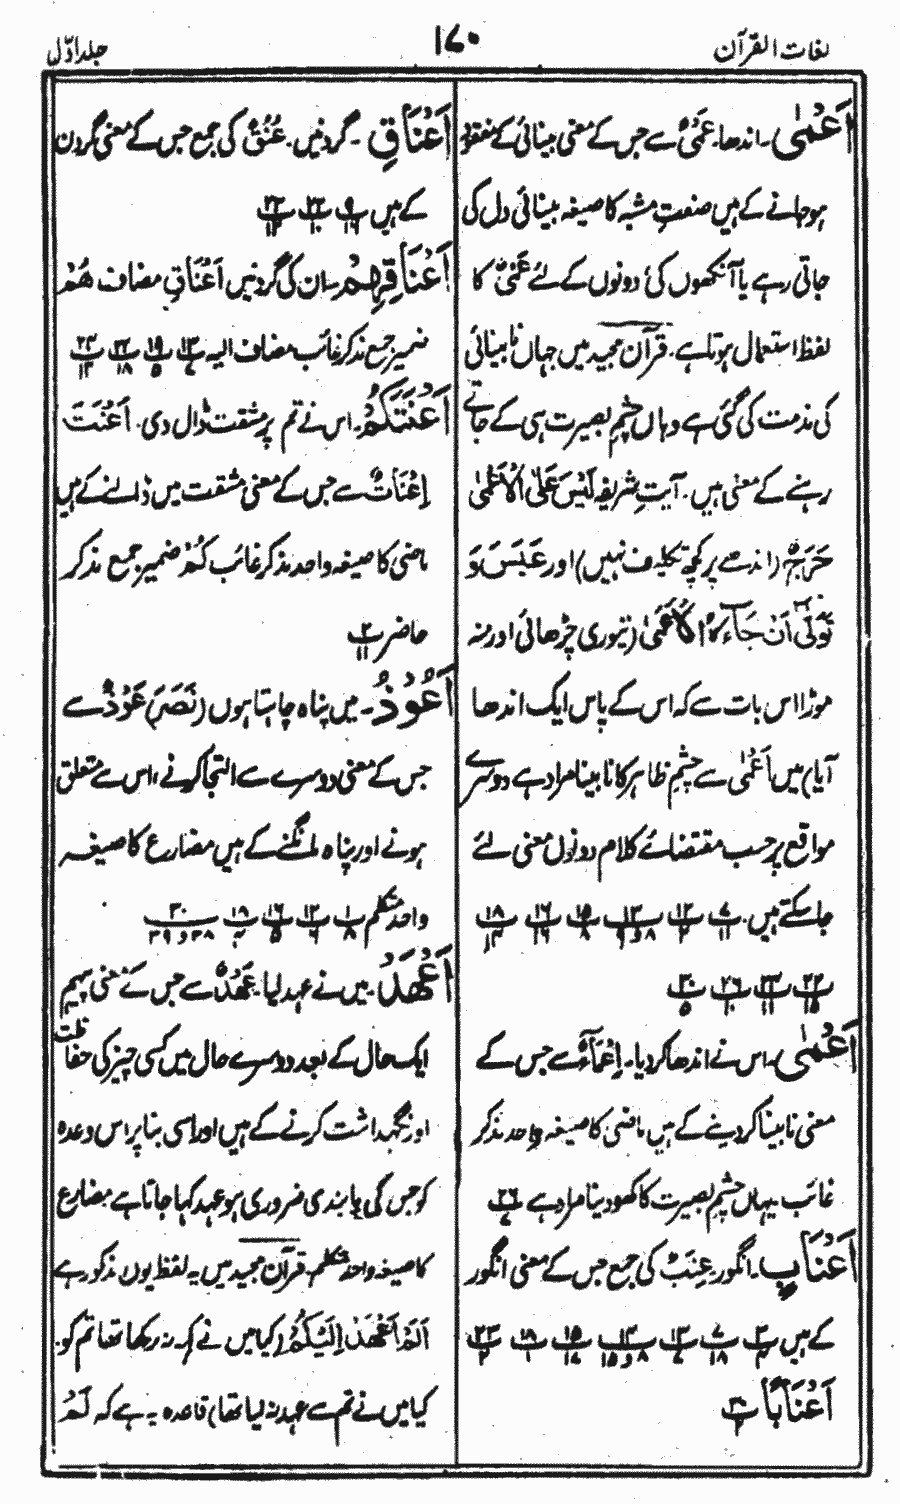 لغات القرآن
١٧٠
جلد اوّل
اَعْمٰی۔ اندھا۔ عَمًی سے جس کے معنی بینائی کے مفقود
ہو جانے کے ہیں صفتِ مشبہ کا صیغہ بینائی دل کی
جاتی رہے یا آنکھوں کی دونوں کے لئے عَمًی کا
لفظ استعمال ہوتا ہے۔ قرآن مجید میں جہاں نابینائی
کی مذمت کی گئی ہے وہاں چشمِ بصیرت ہی کے جاتے
رہنے کے معنی ہیں۔ آیتِ شریفہ لَیْسَ عَلَی الْاَعْمٰی
حَرَجٌ (اندھے پر کچھ تکلیف نہیں) اور عَبَسَ وَ
تَوَلّٰی اَنْ جَآءَہُ الْاَعْمٰی (تیوری چڑھائی اور منہ
موڑا اس بات سے کہ اس کے پاس ایک اندھا
آیا) میں اَعْمٰی سے چشمِ ظاہر کا نابینا مراد ہے دوسرے
مواقع پر حسب مقتضائے کلام دونوں معنی لئے
جا سکتے ہیں۔
اَعْمٰی۔ اس نے اندھا کر دیا۔ اِعْمَاءٌ سے جس کے
معنی نابینا کر دینے کے ہیں ماضی کا صیغہ واحد مذکر
غائب یہاں چشمِ بصیرت کا کھو دینا مراد ہے
اَعْنَابٍ۔ انگور۔ عِنَبٌ کی جمع جس کے معنی انگور
کے ہیں
اَعْنَابًا
اَعْنَاقِ۔ گردنیں۔ عُنُقٌ کی جمع جس کے معنی گردن
کے ہیں
اَعْنَاقِہِمْ۔ ان کی گردنیں اَعْنَاقِ مضاف ھُمْ
ضمیر جمع مذکر غائب مضاف الیہ
اَعْنَتَکُمْ۔ اس نے تم پر مشقت ڈال دی۔ اَعْنَتَ
اِعْنَاتٌ سے جس کے معنی مشقت میں ڈالنے کے ہیں
ماضی کا صیغہ واحد مذکر غائب کُمْ ضمیر جمع مذکر
حاضر
اَعُوْذُ۔ میں پناہ چاہتا ہوں (نَصَرَ) عَوْذٌ سے
جس کے معنی دوسرے سے التجا کرنے، اس سے متعلق
ہونے اور پناہ مانگنے کے ہیں مضارع کا صیغہ
واحد متکلم
اَعْھَدْ۔ میں نے عہد لیا۔ عَھْدٌ سے جس کے معنی پیہم
ایک حال کے بعد دوسرے حال میں کسی چیز کی حفاظت
اور نگہداشت کرنے کے ہیں اور اسی بنا پر اس وعدہ
کو جس کی پابندی ضروری ہو عہد کہا جاتا ہے مضارع
کا صیغہ واحد متکلم قرآن مجید میں یہ لفظ یوں مذکور ہے
اَلَمْ اَعْھَدْ اِلَیْکُمْ (کیا میں نے کہہ نہ رکھا تھا تم کو۔
کیا میں نے تم سے عہد نہ لیا تھا) قاعدہ یہ ہے کہ لَمْ